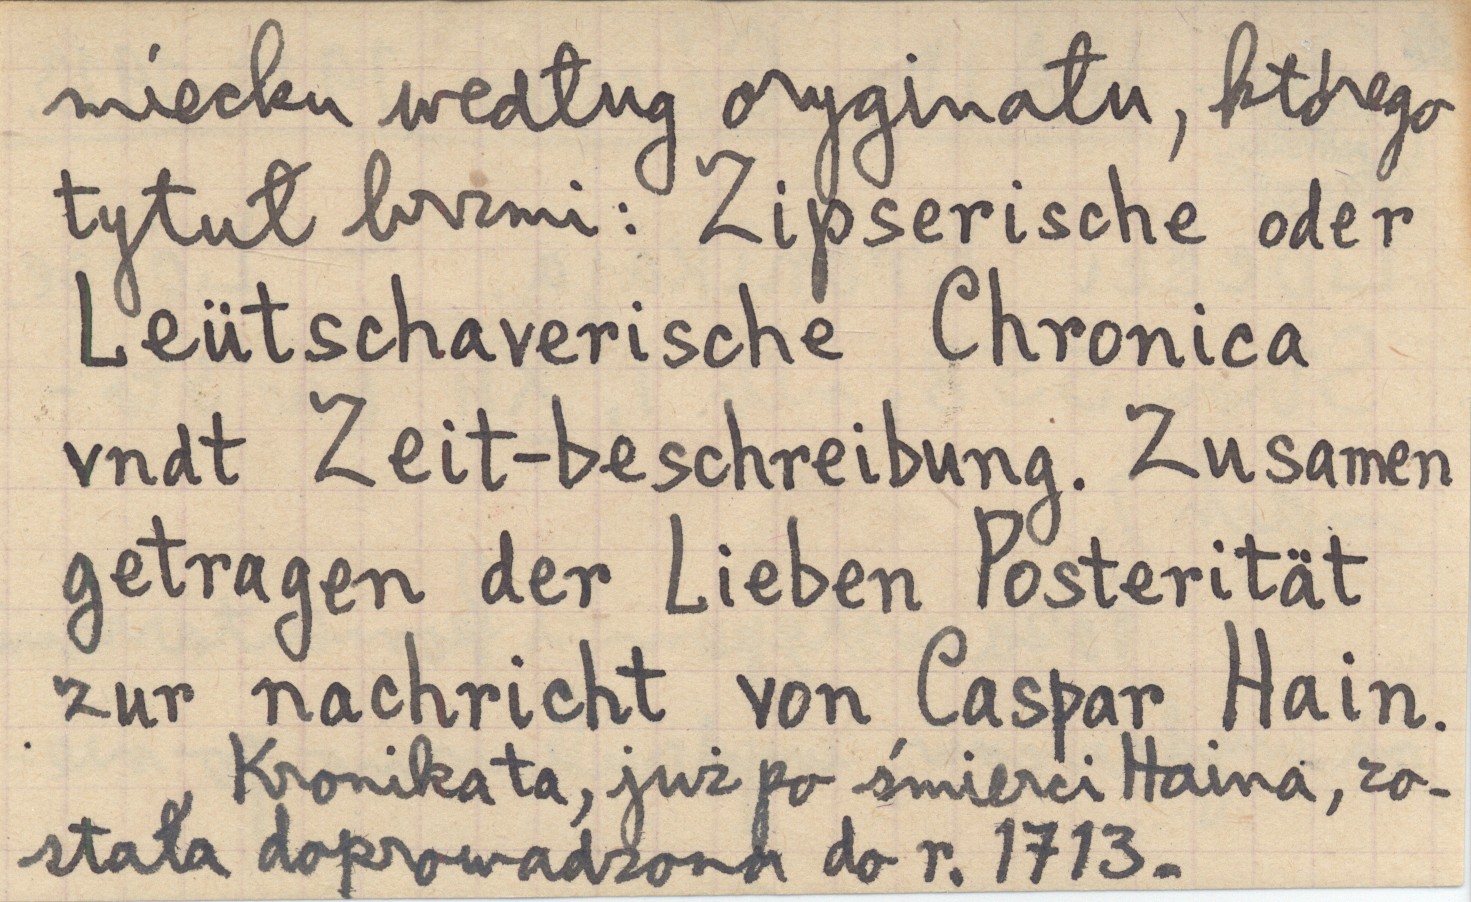 miecku według oryginału, którego
tytuł brzmi: Zipserische oder
Leütschaverische Chronica
vndt Zeit-beschreibung. Zusamen
getragen der Lieben Posterität
zur nachricht von Caspar Hain.
Kronika ta, już po śmierci Haina, zo-
stała doprowadzona do r. 1713.